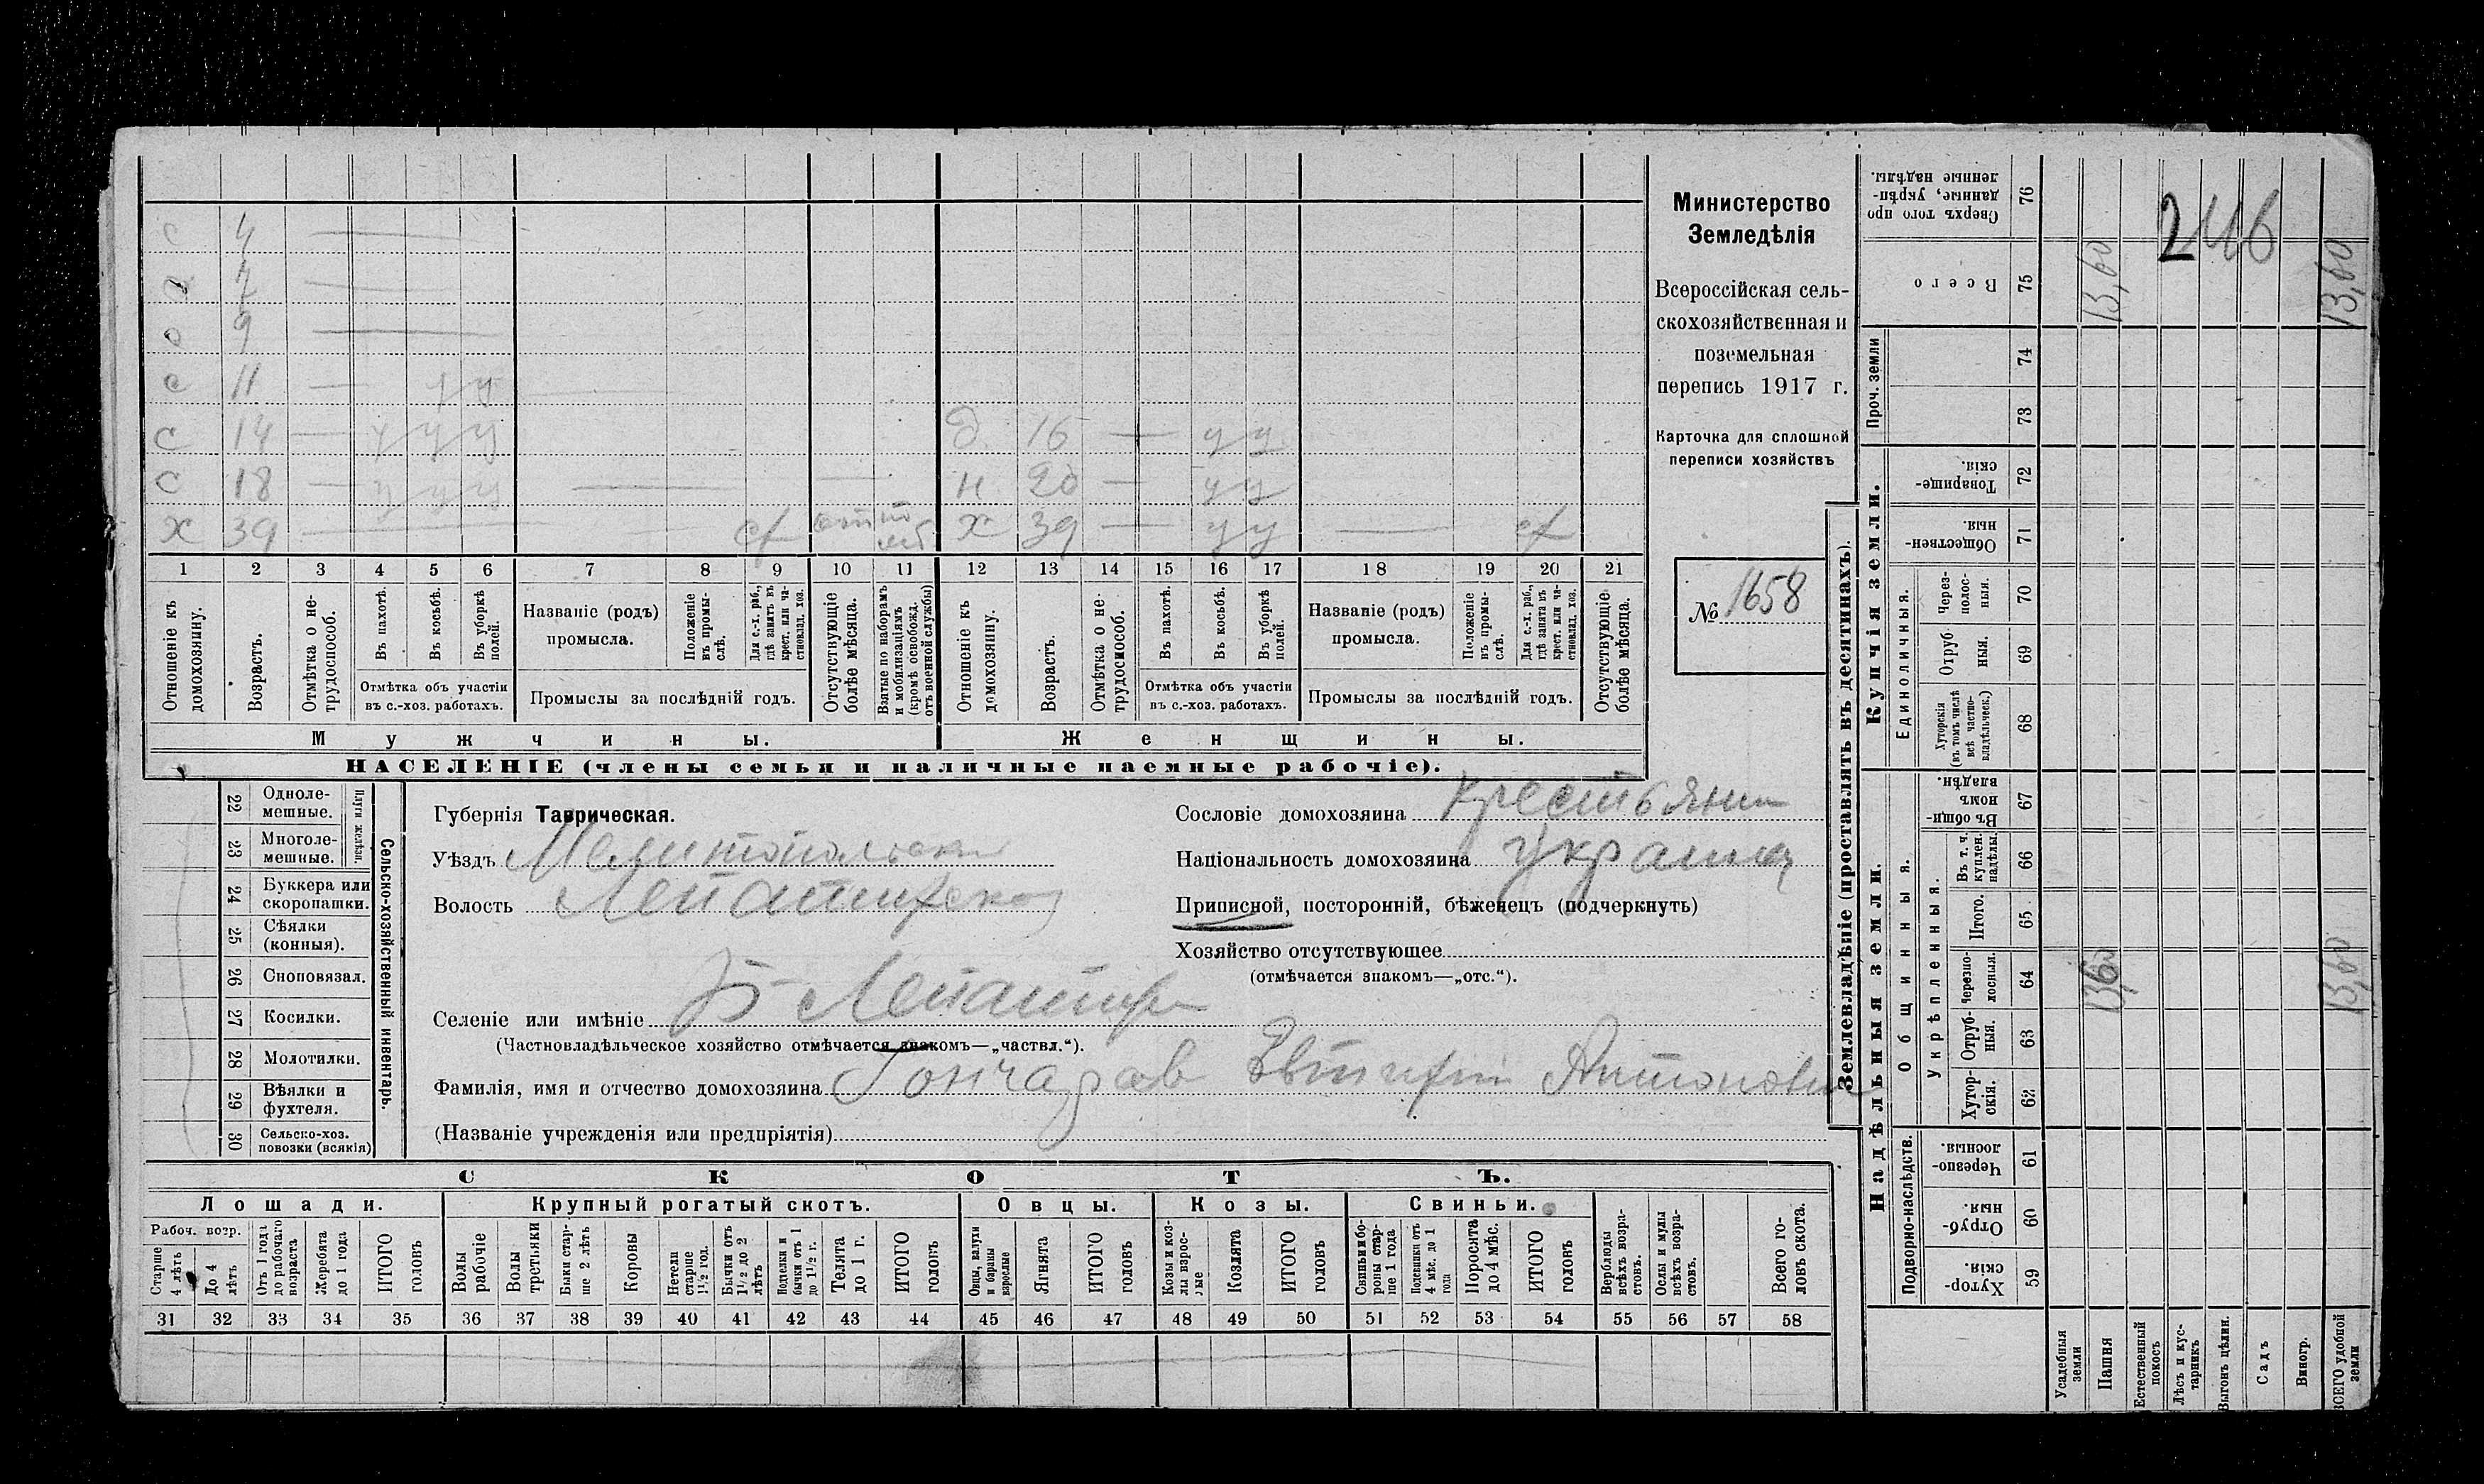 с 4 —
7 —
9 —
с 11 — у у
с 14 — у у у
д 16 — у у
с 18 — у у у — —
н 20 — у у
х 39 —
х 39 — у у —
1 2 3 4 5 6 7 8 9 10 11 12 13 14 15 16 17 18 19 20 21
Отношеніе къ домохозяину.
Возрастъ.
Отмѣтка о не-трудоспособ.
Въ пахотѣ.
Въ косьбѣ.
Въ уборкѣ полей.
Отмѣтка объ участіи
въ с.-хоз. работахъ.
Названіе (родъ)
промысла.
Положеніе въ промы-слѣ.
Для с.-х. раб., гдѣ занятъ въ крест. или ча-стновлад. хоз.
Промыслы за послѣдній годъ.
Отсутствующіе болѣе мѣсяца.
Взятые по наборамъ и мобилизаціямъ (кромѣ освобожд. отъ военной службы)
Отношеніе къ домохозяину.
Возрастъ.
Отмѣтка о не-трудоспособ.
Въ пахотѣ.
Въ косьбѣ.
Въ уборкѣ полей.
Отмѣтка объ участіи
въ с.-хоз. работахъ.
Названіе (родъ)
промысла.
Положеніе въ промы-слѣ.
Для с.-х. раб., гдѣ занята въ крест. или ча-стновлад. хоз.
Промыслы за послѣдній годъ.
Отсутствующіе болѣе мѣсяца.
Мужчины.
Женщины.
НАСЕЛЕНІЕ (члены семьи и наличные наемные рабочіе).
Министерство
Земледѣлія
Всероссійская сель-
скохозяйственная и
поземельная
перепись 1917 г.
Карточка для сплошной
переписи хозяйствъ
№ 1658
22 Одноле-мешные.
23 Многоле-мешные.
Плуги желѣзн.
24 Буккера или скоропашки.
25 Сѣялки (конныя).
26 Сноповязал.
27 Косилки.
28 Молотилки.
29 Вѣялки и фухтеля.
30 Сельско-хоз. повозки (всякія)
Сельско-хозяйственный инвентарь.
Губернія Таврическая.
Уѣздъ Мелитопольский
Волость
Селеніе или имѣніе
(Частновладѣльческое хозяйство отмѣчается знакомъ—„частвл.“).
Фамилія, имя и отчество домохозяина Гончаров Антонович
(Названіе учрежденія или предпріятія)
Сословіе домохозяина крестьянин
Національность домохозяина украинец
Приписной, посторонній, бѣженецъ (подчеркнуть)
Хозяйство отсутствующее
(отмѣчается знакомъ—„отс.“).
СКОТЪ.
Лошади. Крупный рогатый скотъ. Овцы. Козы. Свиньи.
Рабоч. возр.
Старше 4 лѣтъ
До 4 лѣтъ
Отъ 1 года до рабочаго возраста
Жеребята до 1 года
ИТОГО головъ
Волы рабочіе
Волы третьяки
Быки стар-ше 2 лѣтъ
Коровы
Нетели старше 1½ год.
Бычки отъ 1½ до 2 лѣтъ
Подтелки и бычки отъ 1 до 1½ г.
Телята до 1 г.
ИТОГО головъ
Овцы, валухи и бараны взрослые
Ягнята
ИТОГО головъ
Козы и коз-лы взрос-лые
Козлята
ИТОГО головъ
Свиньи и бо-ровы стар-ше 1 года
Подсвинки отъ 4 мѣс. до 1 года
Поросята до 4 мѣс.
ИТОГО головъ
Верблюды всѣхъ возра-стовъ.
Ослы и мулы всѣхъ возра-стовъ.
Всего го-ловъ скота.
31 32 33 34 35 36 37 38 39 40 41 42 43 44 45 46 47 48 49 50 51 52 53 54 55 56 57 58
Землевладѣніе (проставлять въ десятинахъ).
Сверхъ того про-данные, укрѣп-ленные надѣлы. 76
246
Всего 75 13,60 13,60
Проч. земли
74
73
Купчія земли.
Товарище-скія. 72
Обществен-ныя. 71
Единоличныя.
Через-полос-ныя. 70
Отруб-ныя. 69
Хуторскія (въ томъ числѣ всѣ частно-владѣльческ.) 68
Надѣльныя земли.
Общинныя.
Въ общин-номъ владѣн. 67
Укрѣпленныя.
Въ т. ч. куплен. надѣлы. 66
Итого. 65
Черезпо-лосныя. 64 13,60 13,60
Отруб-ныя. 63
Хутор-скія. 62
Подворно-наслѣдств.
Черезпо-лосныя 61
Отруб-ныя. 60
Хутор-скія. 59
Усадебныя земли
Пашня
Естественный покосъ
Лѣсъ и кус-тарникъ
Выгонъ цѣлин.
Садъ
Виногр.
ВСЕГО удобной земли